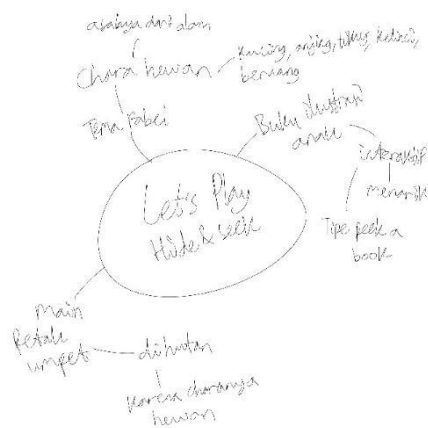 asalnya dari alam
Chara hewan
kucing, anjing, tikus, kelinci,
beruang
Tema Fabel
Buku ilustrasi
anak
interaktif
menarik
Tipe peek a
book
Let's Play
Hide & seek
Main
Petak
umpet
dihutan
karena charanya
hewan